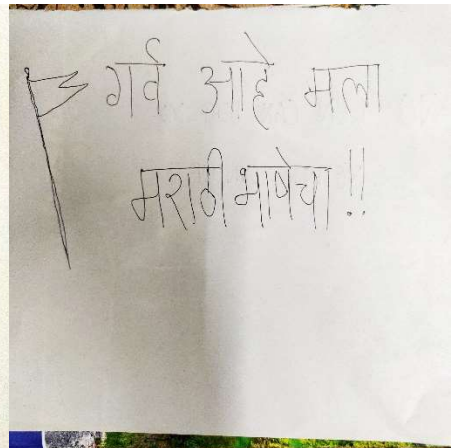 गर्व आहे मला
मराठी भाषेचा !!